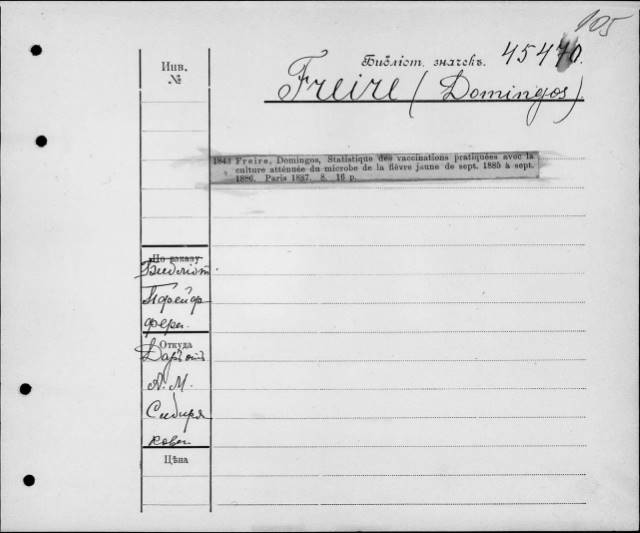 105
Библіот. значекъ. 45470.
Freire (Domingos)
Инв.
№
1843 Freire, Domingos, Statistique des vaccinations pratiquées avec la
culture atténuée du microbe de la fièvre jaune de sept. 1885 à sept.
1886. Paris 1887. 8. 16 p.
По заказу
Библіот.
Пфейф
фера.
Откуда
Даръ отъ
А. М.
Сибиря
кова.
Цѣна